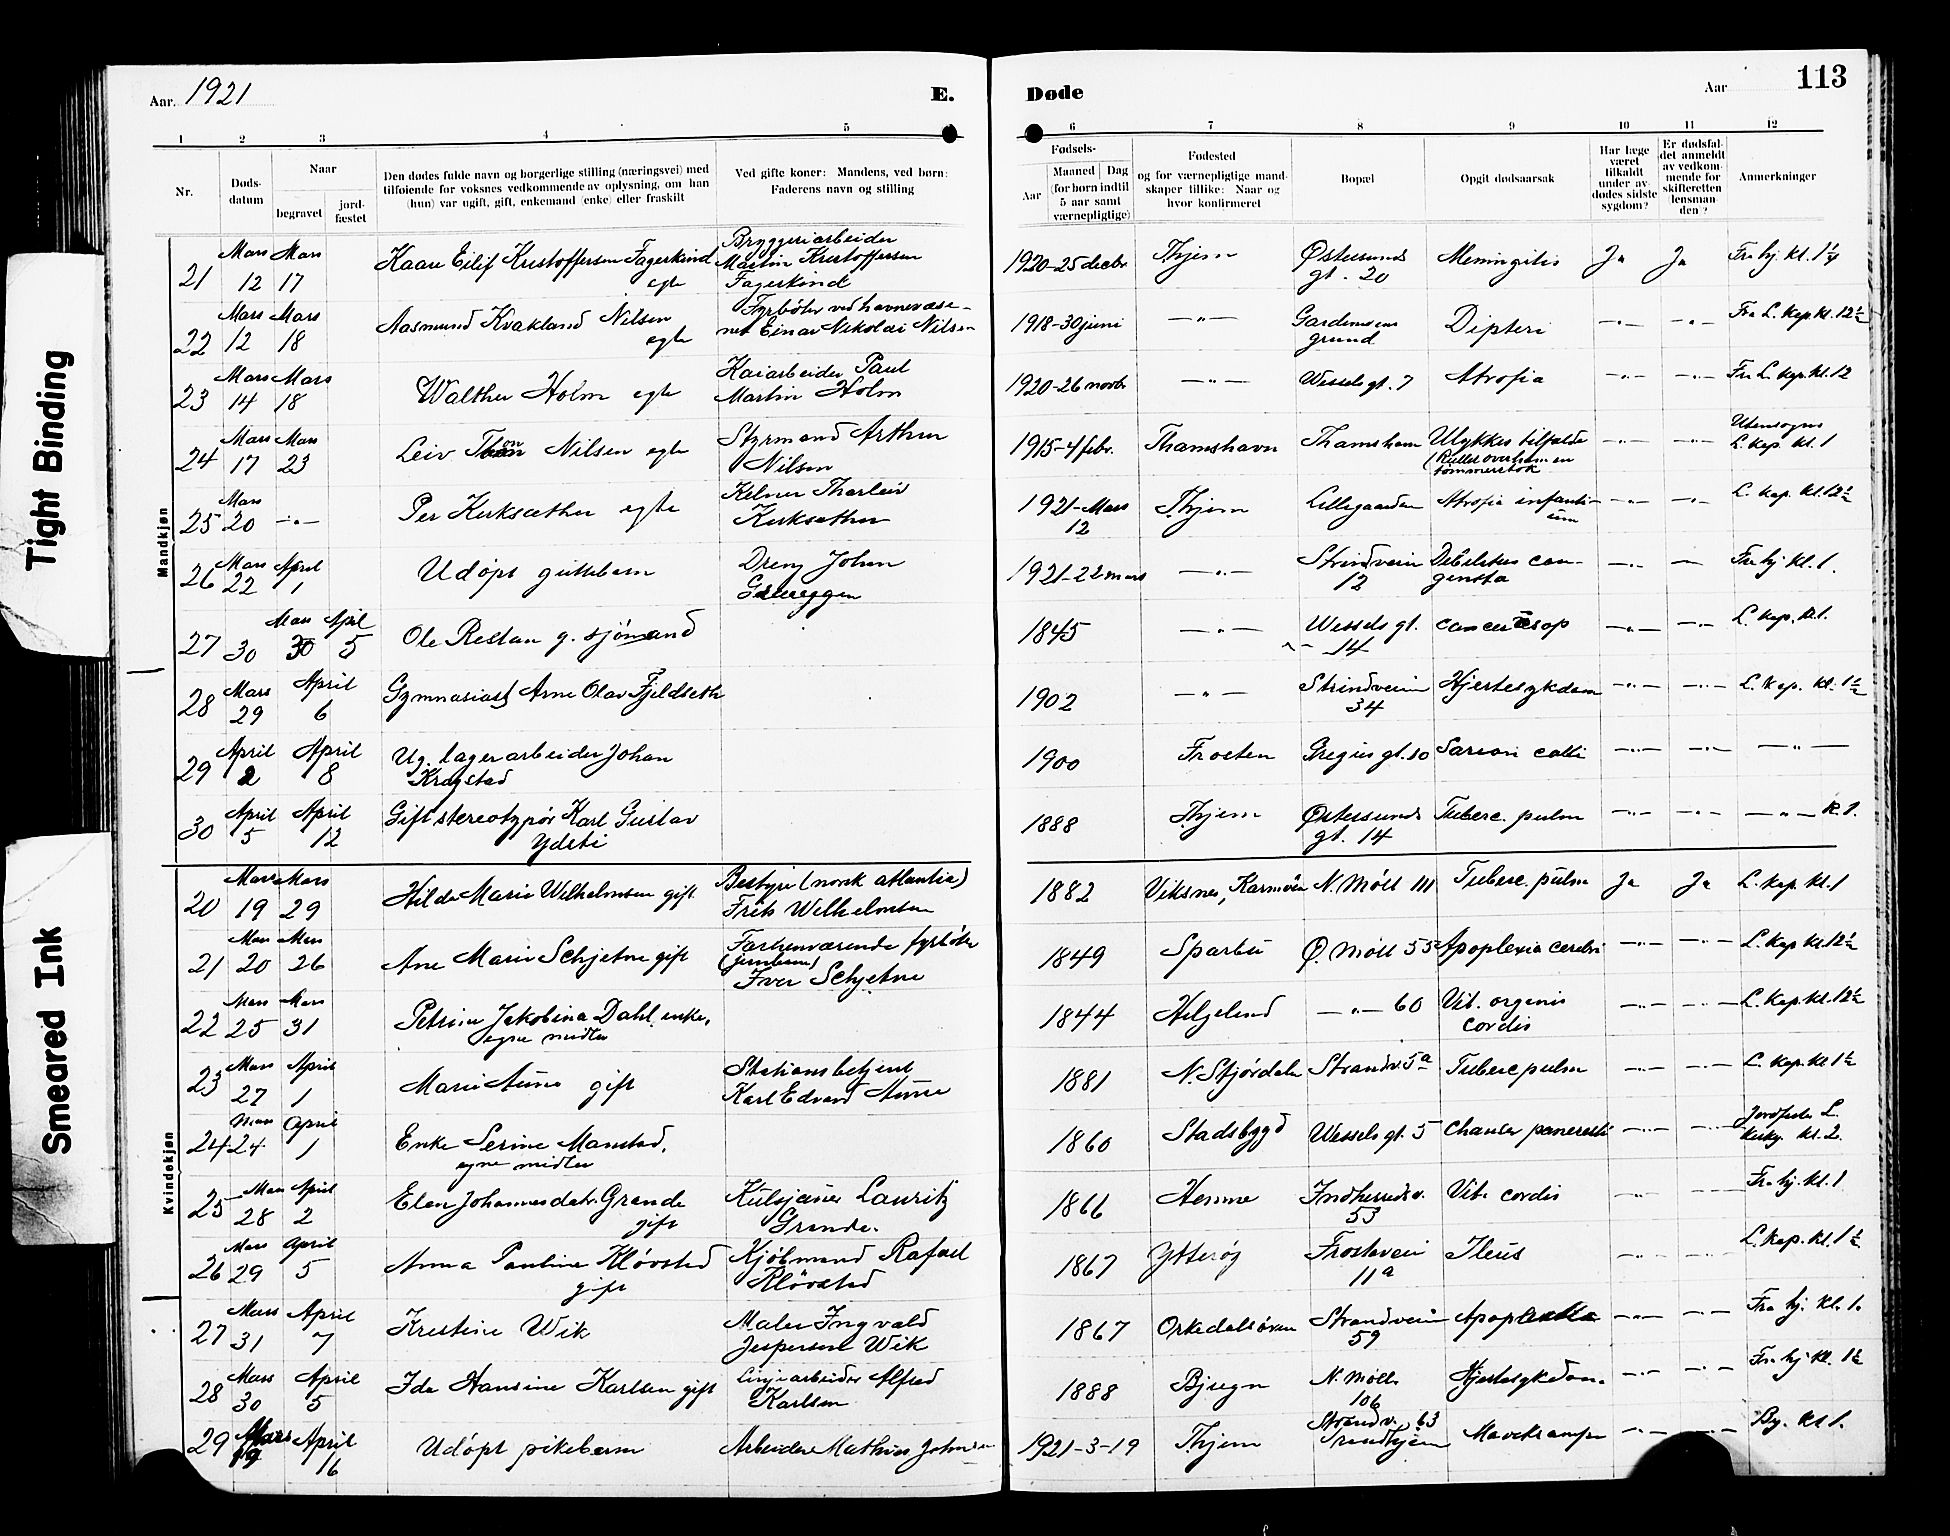 Tight Binding
Smeared Ink
Aar. 1921
E.
Døde
Aar
113
1 2 3 4 5 6 7 8 9 10 11 12
Nr.
Døds-
datum
Naar
begravet
jord-
fæstet
Den dødes fulde navn og borgerlige stilling (næringsvei) med
tilføiende for voksnes vedkommende av oplysning, om han
(hun) var ugift, gift, enkemand (enke) eller fraskilt
Ved gifte koner: Mandens, ved børn:
Faderens navn og stilling
Fødsels-
Aar
Maaned | Dag
(for børn indtil
5 aar samt
værnepligtige)
Fødested
og for værnepligtige mand-
skaper tillike: Naar og
hvor konfirmeret
Bopæl
Opgit dødsaarsak
Har læge
været
tilkaldt
under av-
dødes sidste
sygdom?
Er dødsfal-
det anmeldt
av vedkom-
mende for
skifteretten
(lensman-
den)?
Anmerkninger
Mandkjøn
21 Mars 12 Mars 17 Kaare Eilif Kristoffersen Fagerkind egte Bryggeriarbeider Martin Kristoffersen Fagerkind 1920-25 decbr. Thjem Østersunds gt. 20 Meningitis Ja Ja Fra hj. kl. 1¼
22 Mars 12 Mars 18 Aasmund Kvakland Nilsen egte Fyrbøter ved havnevæse- net Einar Nikolai Nilsen 1918-30 juni —"— grund Dipteri —"— —"— Fra L. kap kl. 12½
23 Mars 14 Mars 18 Walther Holm egte Kaiarbeider Paul Martin Holm 1920-26 novbr —"— Wessels gt. 7 Atrofia —"— —"— Fra L. kap. kl. 12
24 Mars 17 Mars 23 Leiv Thon Nilsen egte Styrmand Arthur Nilsen 1915-4 febr. Thamshavn Thamshavn Ulykkestilfælde (Rullet over ham en tømmerstok —"— —"— Utensogns L. kap. kl. 1
25 Mars 20 —"— Per Kirksæther egte Kelner Tharleiv Kirksæther 1921-Mars 12 Thjem Lillegaarden Atrofia infanti- um —"— —"— L. kap. kl. 12½
26 Mars 22 April 1 Udøpt guttebarn Dreng Johan 1921-22 mars —"— Strindveien 12 Debilitas con- genita —"— — Fra hj. kl. 1.
27 30 Mars 30 April 5 Ole Restan g. sjömand 1845 —"— Wessels gt. 14 cancer øsop —"— —"— L. kap. kl. 1.
28 Mars 29 April 6 Gymnasiast Arne Olav Fjeldseth 1902 —"— Strindveien 34 Hjertesykdom —"— —"— L. kap. kl. 1½
29 April 2 April 8 Ug. lagerarbeider Johan Krogstad 1900 Frosten Gregus gt. 10 Sarcom colli —"— —"— —"—
30 April 5 April 12 Gift stereotypør Karl Gustav Ydsti 1888 Thjem Østersunds gt. 14 Tuberc. pulm —"— —"— —"— kl. 1.
Kvindekjøn
20 Mars 19 Mars 29 Hilda Marie Wilhelmsen gift Bestyre (norsk atlantia) Frits Wilhelmsen 1882 Viksnes, Karmøen N. Møll 111 Tuberc. pulm Ja Ja L. kap. kl. 1
21 Mars 20 Mars 26 Ane Marie Schjetne gift Forhenværende fyrbøter (jernbane) Iver Schjetne 1849 Sparbu Ø. Møll 55 Apoplexia cerebri —"— —"— L. kap kl. 12½
22 Mars 25 Mars 31 Petrine Jakobina Dahl, enke, egne midler 1844 Helgeland —"— 60 Vit. organis cordis —"— —"— L. kap. kl. 12½
23 Mars 27 April 1 Marie Aune gift Stationsbetjent Karl Edvard Aune 1881 N. Stjørdalen Strandv. 5a Tuberc pulm —"— —"— L. kap. kl 1½
24 Mars 24 April 1 Enke Serine Manstad, egne midler 1860 Stadsbygd Wessels gt. 5 Chancer pancreati —"— —"— Jordfæstet L. kl. 2.
25 Mars 28 April 2 Elen Johannesdatr. Grande gift Kulsjauer Lauritz Grande. 1866 Hemne Indherredsv. 53 Vit. cordis —"— —"— Fra hj. kl. 1
26 Mars 29 April 5 Anna Pauline Kløvstad gift Kjøbmand Rafael Kløvstad 1867 Ytterøy Frostaveien 11a Ileus —"— —"— L. kap. kl. 1½
27 Mars 31 April 7 Kristine Wik Maler Ingvald Jespersen Wik 1867 Orkedalsøren Strandveien 59 —"— —"— Fra hj. kl. 1.
28 Mars 30 April 5 Ida Hansine Karlsen gift Linjearbeider Alfred Karlsen 1888 Bjugn N. Mølle 106 Hjertesykdom. —"— —"— Fra hj. kl. 1½
29 Mars 19 April 16 Udøpt pikebarn Arbeider Mathias Johnsen 1921-3-19 Thjem Strandv. 63 Trondhjem Mavekrampe —"— —"— By. kl 1.